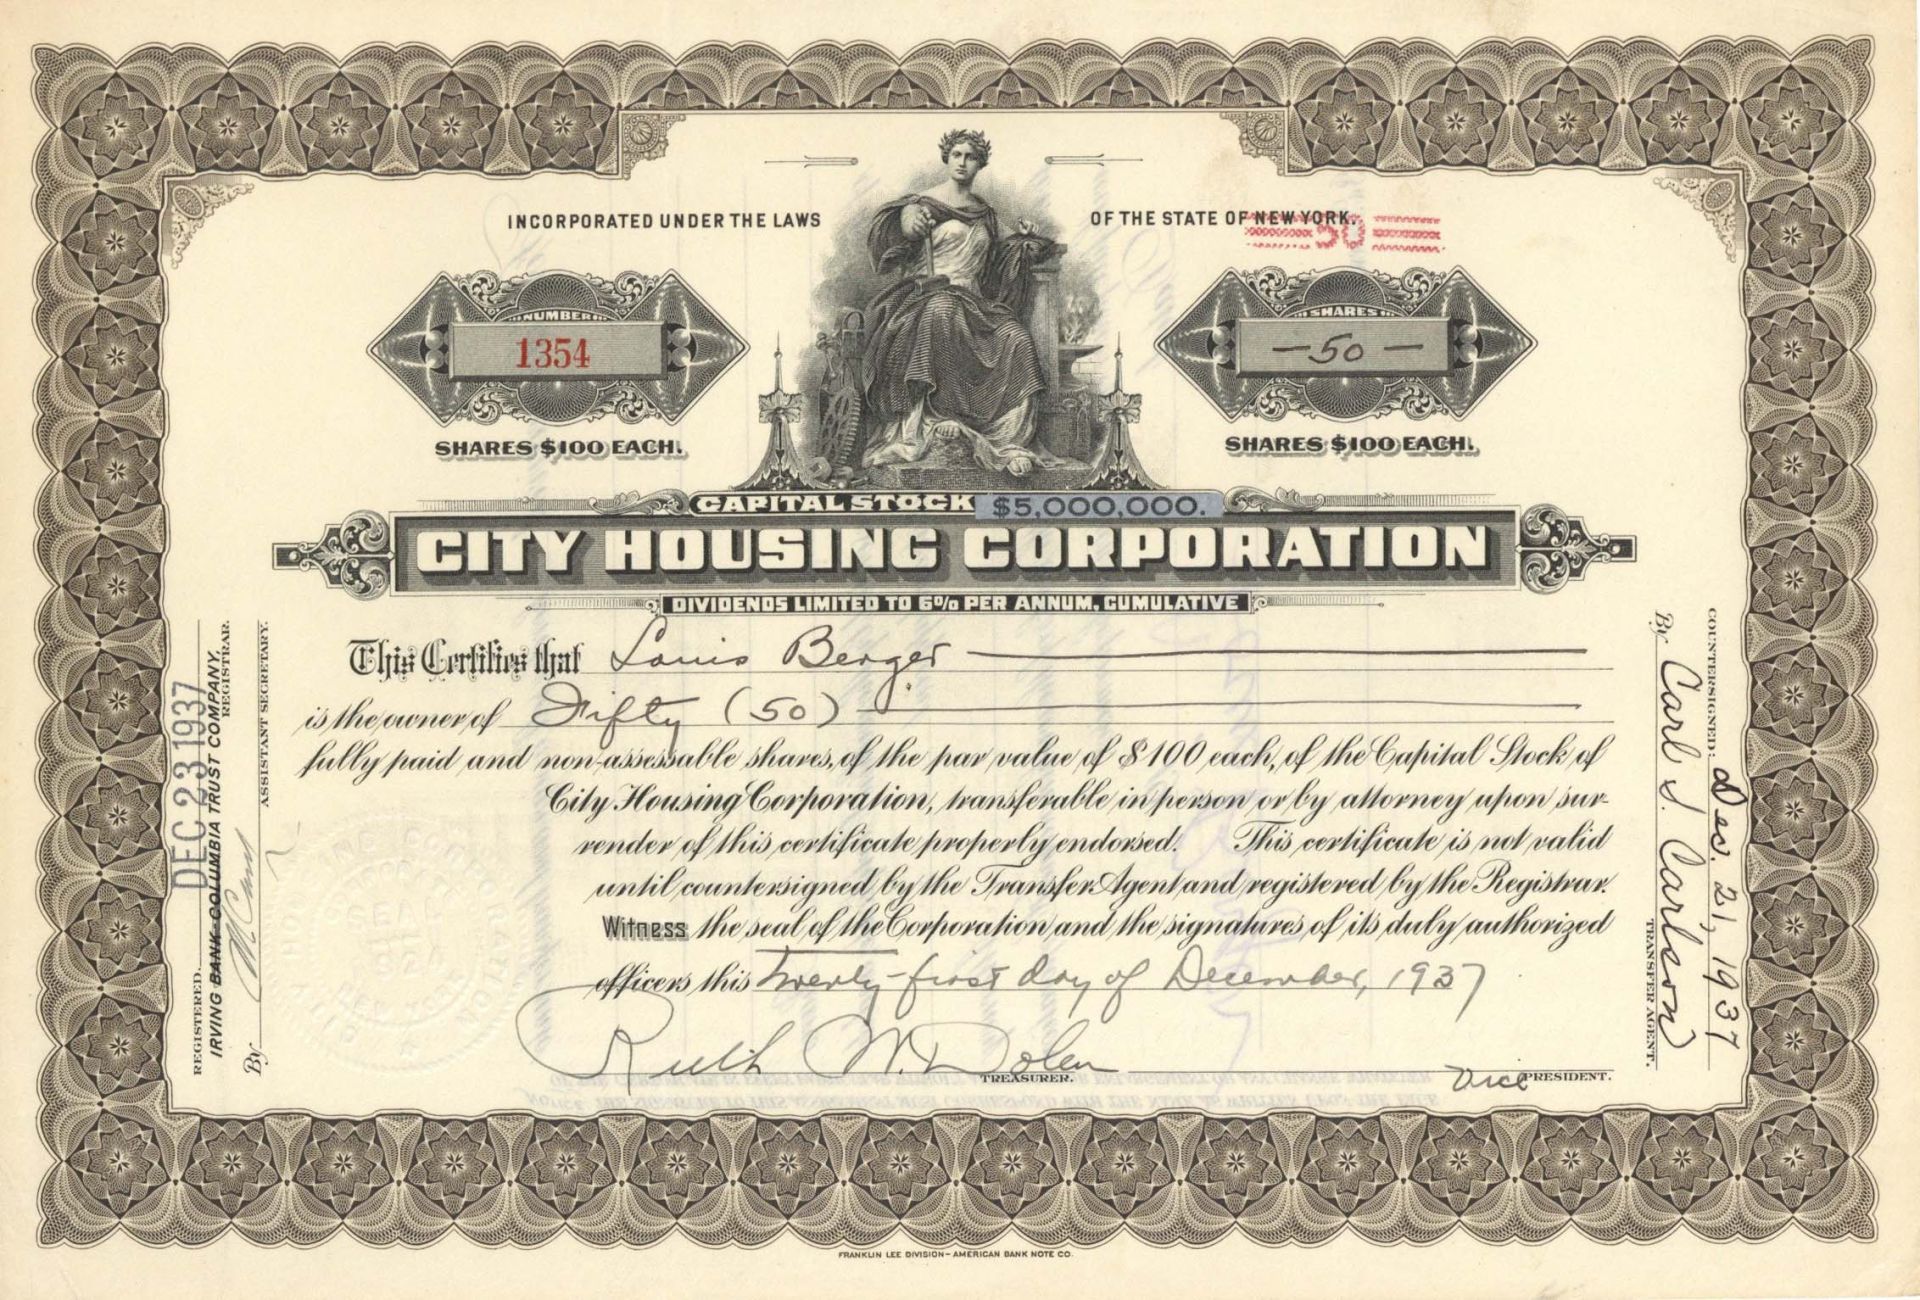 INCORPORATED UNDER THE LAWS OF THE STATE OF NEW YORK.
50
NUMBER
1354
SHARES $100 EACH.
SHARES
-50-
SHARES $100 EACH.
CAPITAL STOCK $5,000,000.
CITY HOUSING CORPORATION
DIVIDENDS LIMITED TO 6% PER ANNUM, CUMULATIVE
This Certifies that Louis Berger
is the owner of Fifty (50)
fully paid and non-assessable shares, of the par value of $100 each, of the Capital Stock of
City Housing Corporation, transferable in person or by attorney upon sur-
render of this certificate properly endorsed. This certificate is not valid
until countersigned by the Transfer Agent and registered by the Registrar.
Witness the seal of the Corporation and the signatures of its duly authorized
officers this Twenty-first day of December, 1937
Ruth W. Dolen
TREASURER.
Vice PRESIDENT.
REGISTERED
DEC 23 1937
REGISTRAR.
IRVING BANK-COLUMBIA TRUST COMPANY,
By
ASSISTANT SECRETARY.
COUNTERSIGNED: Dec. 21, 1937
By Carl S. Carlson
TRANSFER AGENT.
SEAL
FRANKLIN LEE DIVISION-AMERICAN BANK NOTE CO.